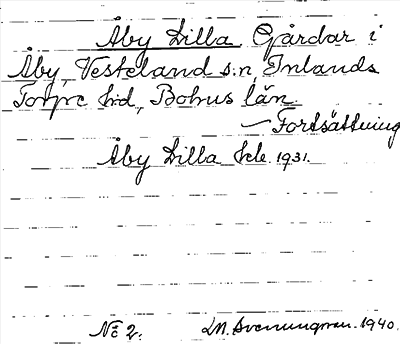 Åby Lilla Gårdar i
Åby, Vesteland s:n, Inlands
Torpe hd, Bohus län
— Fortsättning
Åby Lilla 1931.
No 2. Svenungsson. 1940.